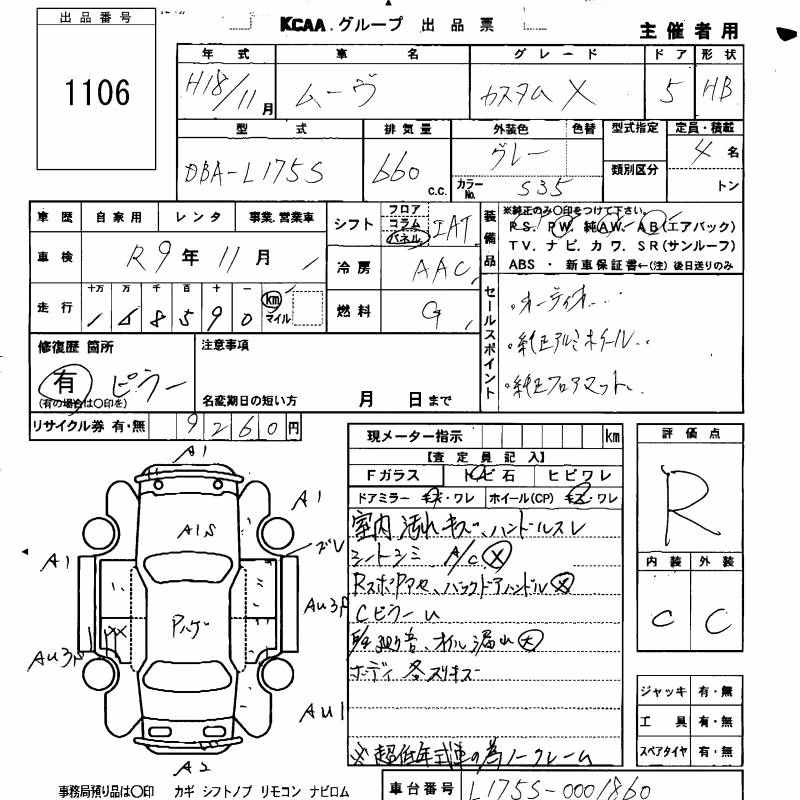 出品番号
1106
KCAA.グループ 出品票
主催者用
年式 車名 グレード ドア 形状
H18/11月 ムーヴ カスタム X 5 HB
型式 排気量 外装色 色替 型式指定 定員・積載
DBA-L175S 660 c.c. グレー 類別区分 4名
カラーNo. S35 トン
車歴 自家用 レンタ 事業.営業車
シフト フロア コラム パネル IAT
装備品
※純正のみ〇印をつけて下さい。
PS. PW. 純AW. AB(エアバック)
TV. ナビ. カワ. SR(サンルーフ)
ABS ・ 新車保証書←(注)後日送りのみ
車検 R9年11月
冷房 AAC
走行 十万 万 千 百 十 一 km マイル
168590
燃料 G
セールスポイント
・オーディオ
・純正アルミホイール
・純正フロアマット
修復歴 箇所
有 ピラー
(有の場合は〇印を)
注意事項
名変期日の短い方 月 日まで
リサイクル券 有・無 9260円
現メーター指示 km
【査定員記入】
Fガラス トビ石 ヒビワレ
ドアミラー キズ・ワレ ホイール(CP) キズ・ワレ
室内汚れキズ、ハンドルスレ
シートシミ A/C×
Cピラーu
オイル漏れ大
ボディ各スリキズ
※超低年式車の為ノークレーム
評価点
R
内装 外装
C C
ジャッキ 有・無
工具 有・無
スペアタイヤ 有・無
A1
A1
A1S
ズレ
A1
AU3P
Pルーフ
XX
AU1
A2
事務局預り品は〇印 カギ シフトノブ リモコン ナビロム
車台番号 L175S-0001860